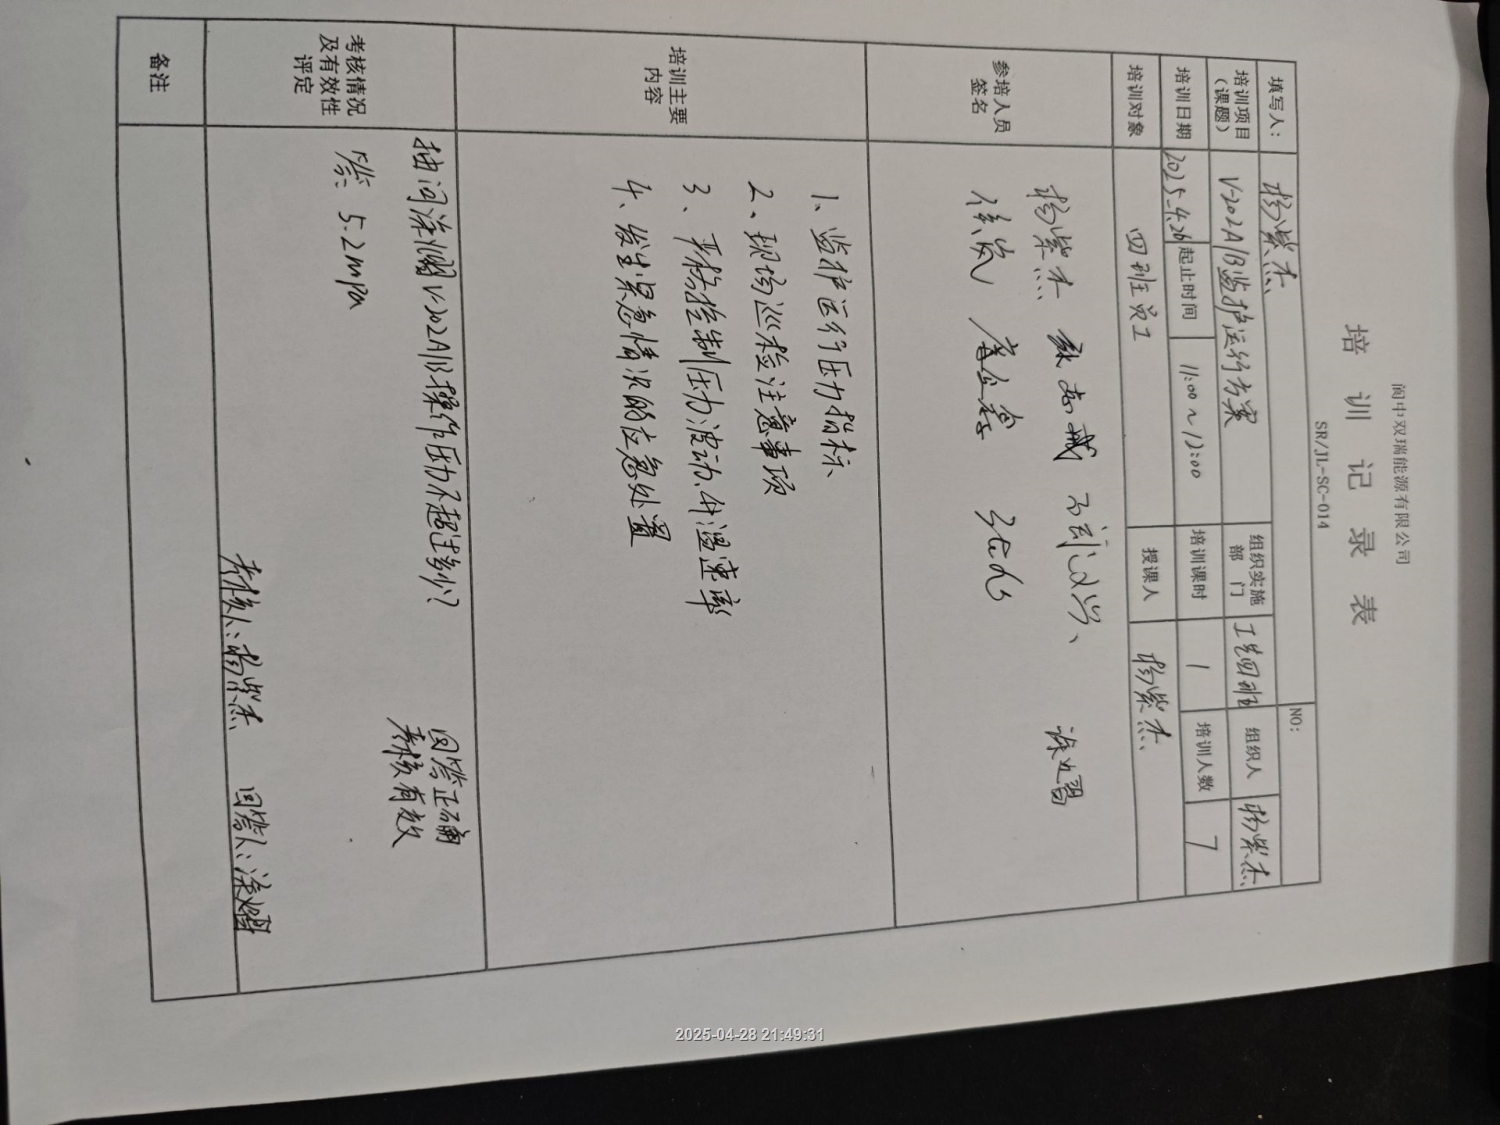 阆中双瑞能源有限公司
培训记录表
SR/JL-SC-014
NO:
填写人: 杨紫杰
培训项目(课题) V-202A/B监护运行方案 组织实施部门 工艺四班 组织人 杨紫杰
培训日期 2025.4.26 起止时间 11:00~12:00 培训课时 1 培训人数 7
培训对象 四班员工 授课人 杨紫杰
参培人员签名 杨紫杰
侯岚
培训主要内容
1、监护运行压力指标
2、现场巡检注意事项
3、严格控制压力波动、升温速率
4、发生紧急情况的应急处置
考核情况及有效性评定
抽问涂熠V-202A/B操作压力不超过多少?
答: 5.2mpa
回答正确
考核有效
考核人: 杨紫杰 回答人: 涂熠
备注
2025-04-28 21:49:31